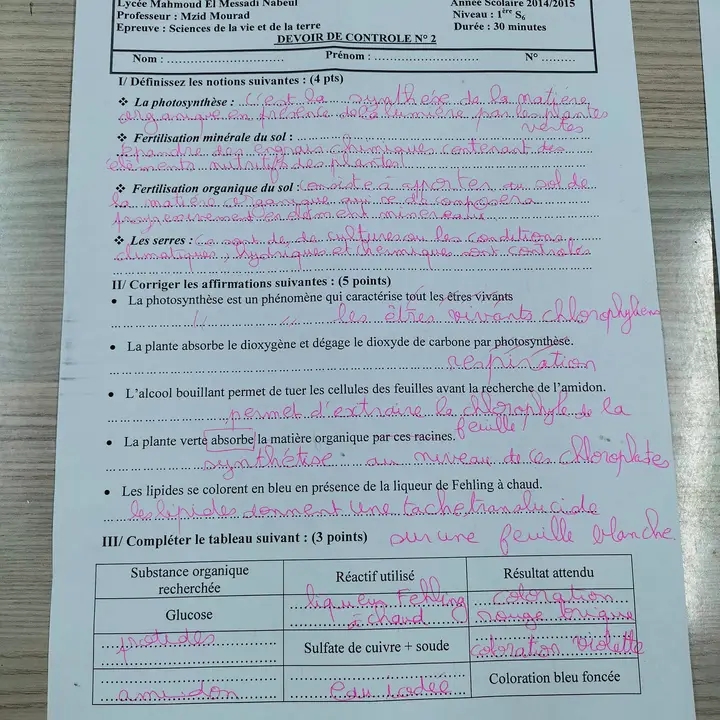 Lycée Mahmoud El Messadi Nabeul
Professeur : Mzid Mourad
Epreuve : Sciences de la vie et de la terre
Année Scolaire 2014/2015
Niveau : 1ère S6
Durée : 30 minutes
DEVOIR DE CONTROLE N° 2
Nom : .............................. Prénom : .............................. N° ..........
I/ Définissez les notions suivantes : (4 pts)
❖ La photosynthèse : c'est la synthèse de la matière
organique en présence de la lumière par les plantes
vertes
❖ Fertilisation minérale du sol :
Epandre des engrais chimiques contenant des
éléments nutritifs des plantes
❖ Fertilisation organique du sol : consiste à apporter au sol de
la matière organique qui se décomposera
progressivement en élément minéraux
❖ Les serres : ce sont de cultures ou les conditions
climatiques, hydriques et chimique sont controlés
II/ Corriger les affirmations suivantes : (5 points)
• La photosynthèse est un phénomène qui caractérise tout les êtres vivants
" " les êtres vivants chlorophyliens
• La plante absorbe le dioxygène et dégage le dioxyde de carbone par photosynthèse.
respiration
• L'alcool bouillant permet de tuer les cellules des feuilles avant la recherche de l'amidon.
permet d'extraire la chlorophyle de la
feuille
• La plante verte absorbe la matière organique par ces racines.
synthétise au niveau de ces chloroplates
• Les lipides se colorent en bleu en présence de la liqueur de Fehling à chaud.
les lipides donnent une tache translucide
sur une feuille blanche.
III/ Compléter le tableau suivant : (3 points)
Substance organique recherchée Réactif utilisé Résultat attendu
Glucose liqueur Fehling à chaud coloration rouge brique
protides Sulfate de cuivre + soude coloration violette
amidon eau iodée Coloration bleu foncée